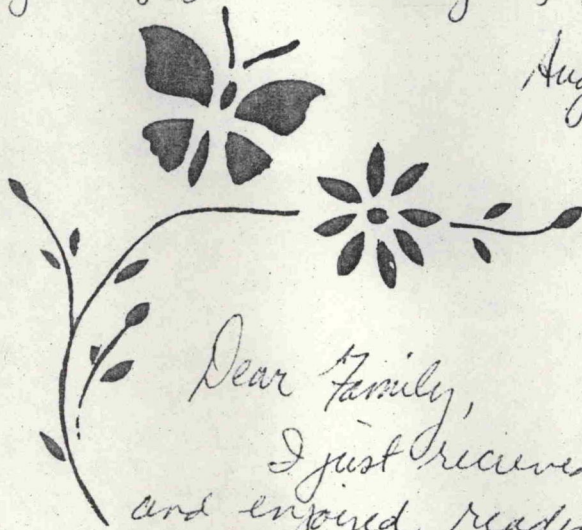 Aug
Dear Family,
I just recieved
and enjoyed read